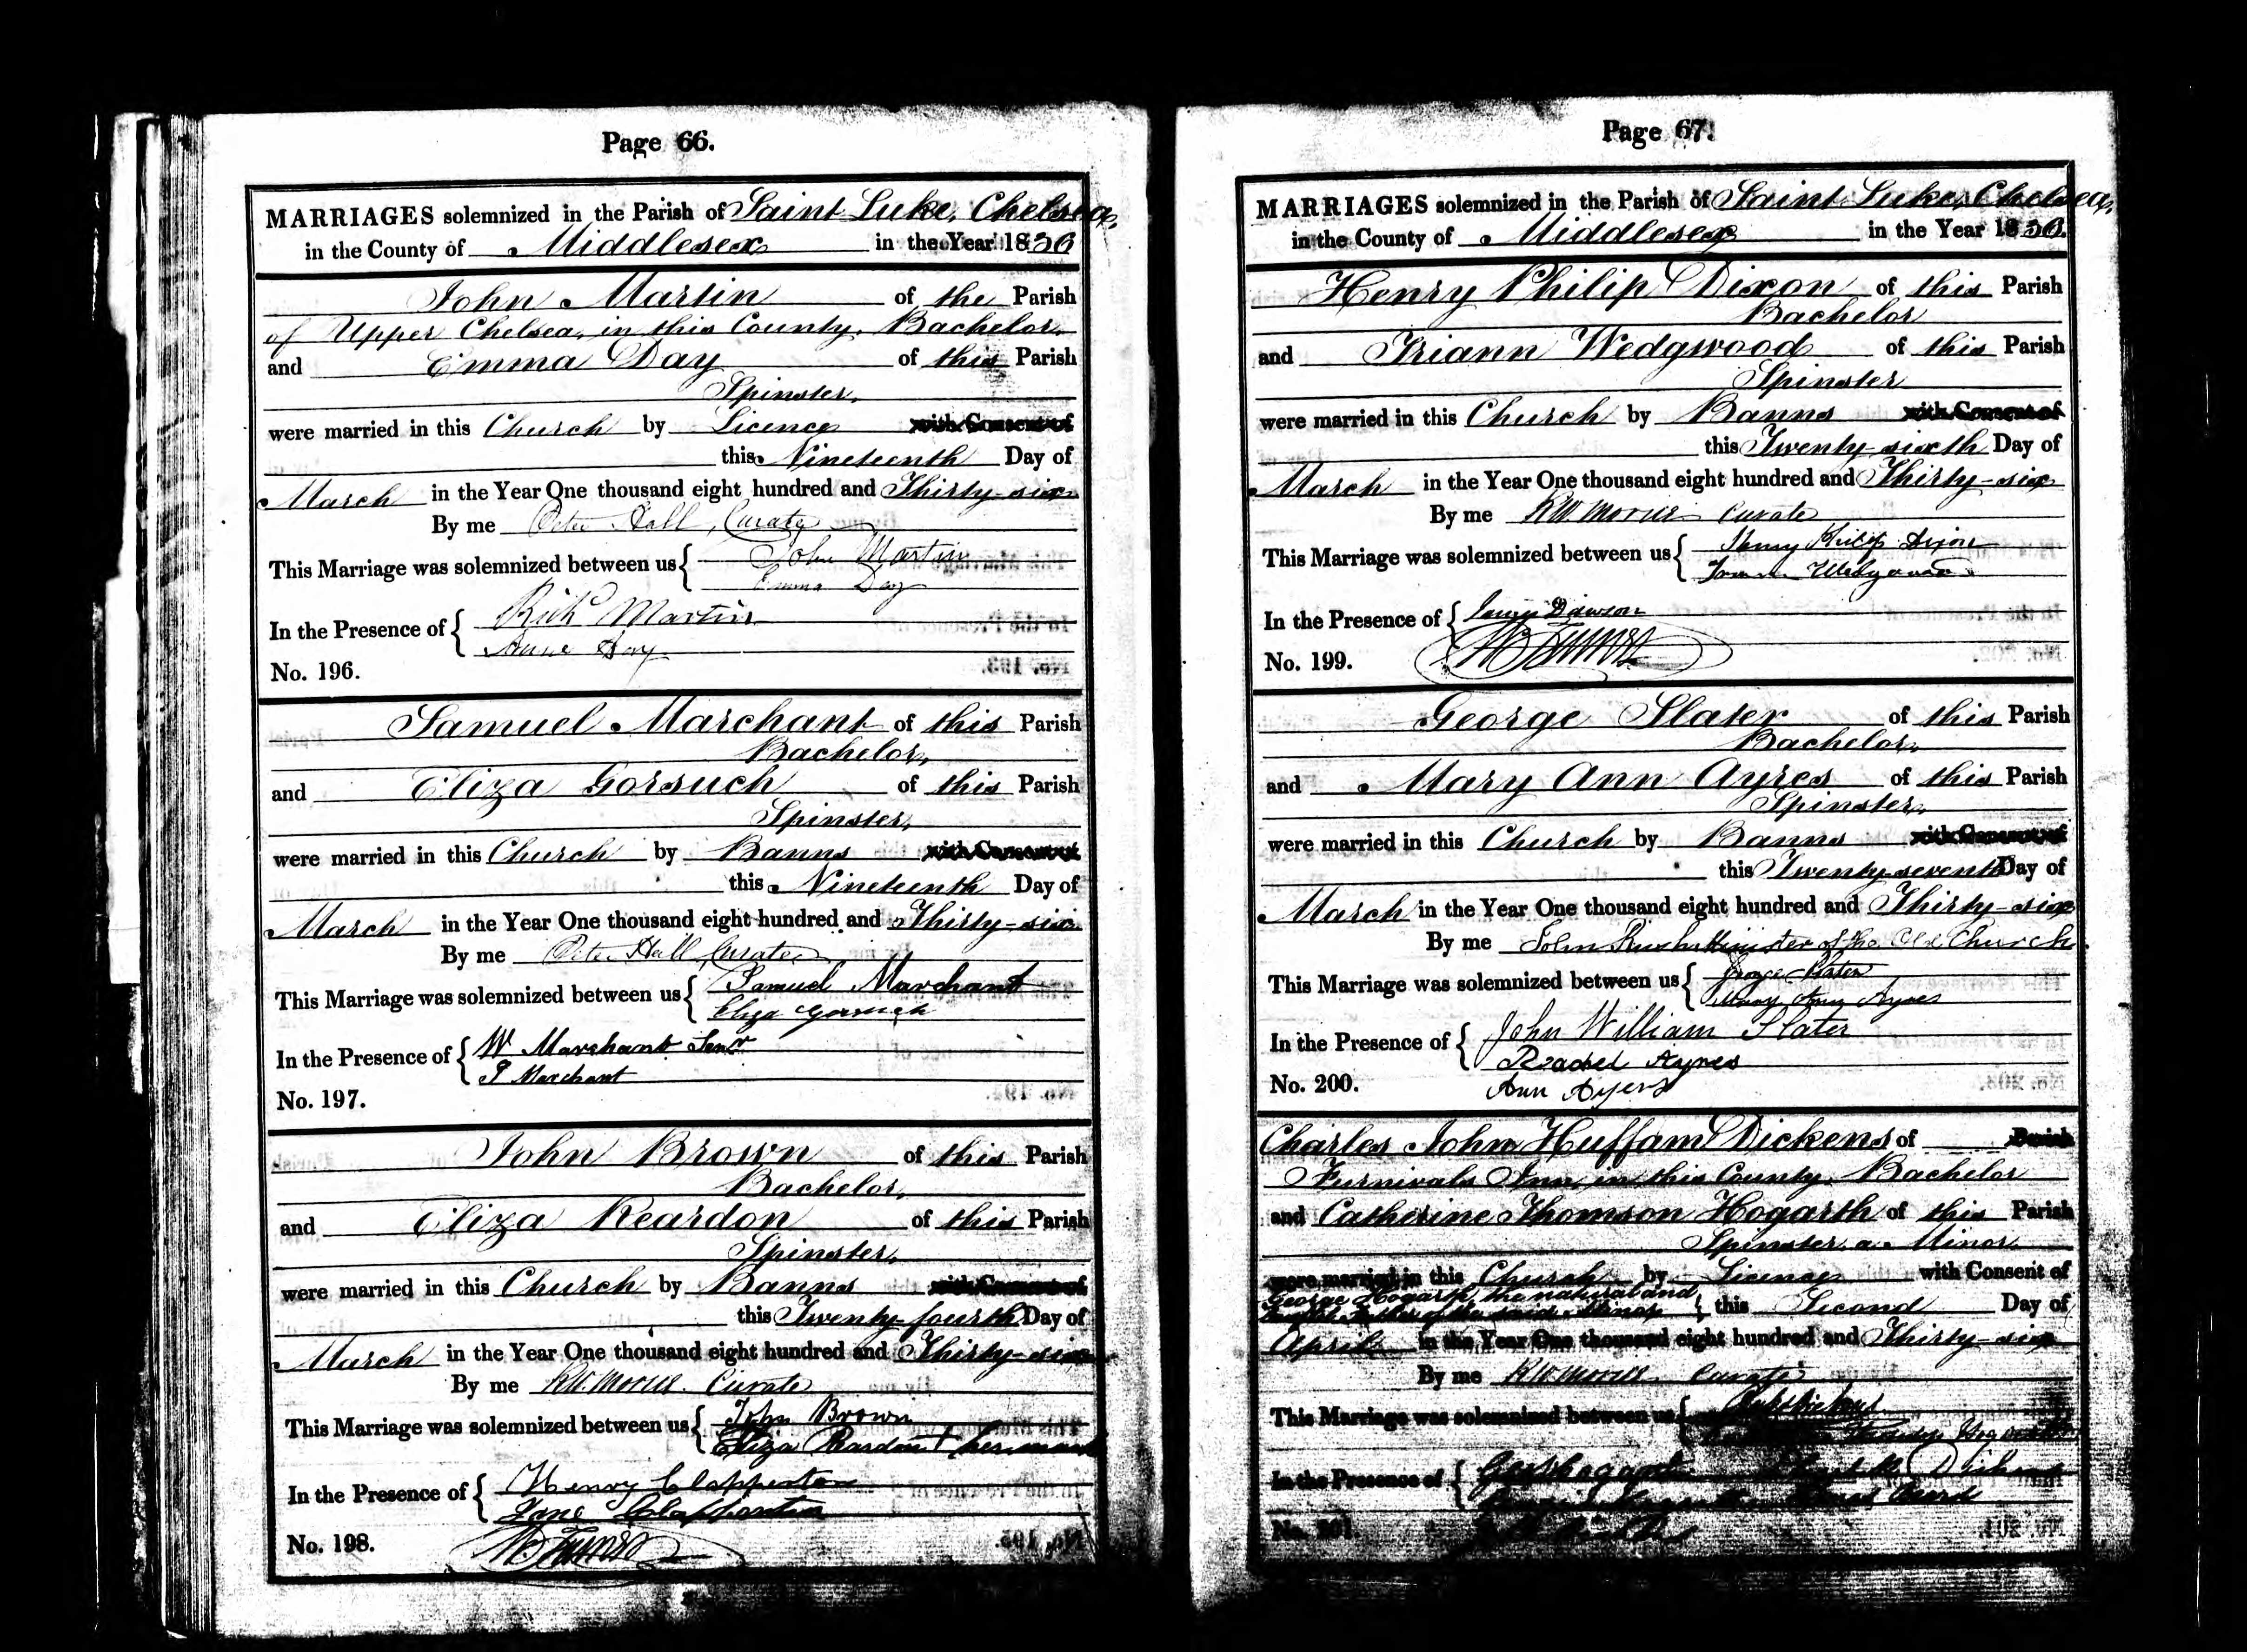 Page 66.
MARRIAGES solemnized in the Parish of Saint Luke, Chelsea,
in the County of Middlesex in the Year 1836
John Martin of the Parish
of Upper Chelsea, in this County, Bachelor,
and Emma Day of this Parish
Spinster,
were married in this Church by Licence with Consent of
this Nineteenth Day of
March in the Year One thousand eight hundred and Thirty-six
By me Peter Hall, Curate
This Marriage was solemnized between us { John Martin
Emma Day
In the Presence of { Richd Martin
Anne Day
No. 196.
Samuel Marchant of this Parish
Bachelor,
and Eliza Gorsuch of this Parish
Spinster,
were married in this Church by Banns with Consent of
this Nineteenth Day of
March in the Year One thousand eight hundred and Thirty-six
By me Peter Hall, Curate
This Marriage was solemnized between us { Samuel Marchant
Eliza Gorsuch
In the Presence of { W Marchant Senr
P Marchant
No. 197.
John Brown of this Parish
Bachelor,
and Eliza Reardon of this Parish
Spinster,
were married in this Church by Banns with Consent of
this Twenty-fourth Day of
March in the Year One thousand eight hundred and Thirty-six
By me Curate
This Marriage was solemnized between us { John Brown
Eliza Reardon + her mark
In the Presence of { Henry Clapperton
Jane Clapperton
No. 198.
Page 67.
MARRIAGES solemnized in the Parish of Saint Luke, Chelsea,
in the County of Middlesex in the Year 1836.
Henry Philip Dixon of this Parish
Bachelor
and Triann Wedgwood of this Parish
Spinster
were married in this Church by Banns with Consent of
this Twenty-sixth Day of
March in the Year One thousand eight hundred and Thirty-six
By me Curate
This Marriage was solemnized between us { Henry Philip Dixon
Wedgwood
In the Presence of { Dawson
No. 199.
George Slater of this Parish
Bachelor,
and Mary Ann Ayres of this Parish
Spinster,
were married in this Church by Banns with Consent of
this Twenty-seventh Day of
March in the Year One thousand eight hundred and Thirty-six
By me John Minister of the Old Church
This Marriage was solemnized between us { George Slater
Mary Ann Ayres
In the Presence of { John William Slater
Rachel Ayres
No. 200. Ann Ayers
Charles John Huffam Dickens of Parish
Furnivals Inn, in this County, Bachelor
and Catherine Thomson Hogarth of this Parish
Spinster, a Minor
were married in this Church by Licence with Consent of
George Hogarth, the natural and
lawful Father of the said Minor } this Second Day of
April in the Year One thousand eight hundred and Thirty-six
By me Curate
This Marriage was solemnized between us { Chas Dickens
Hogarth
In the Presence of { Geo Hogarth Dickens
No. 201